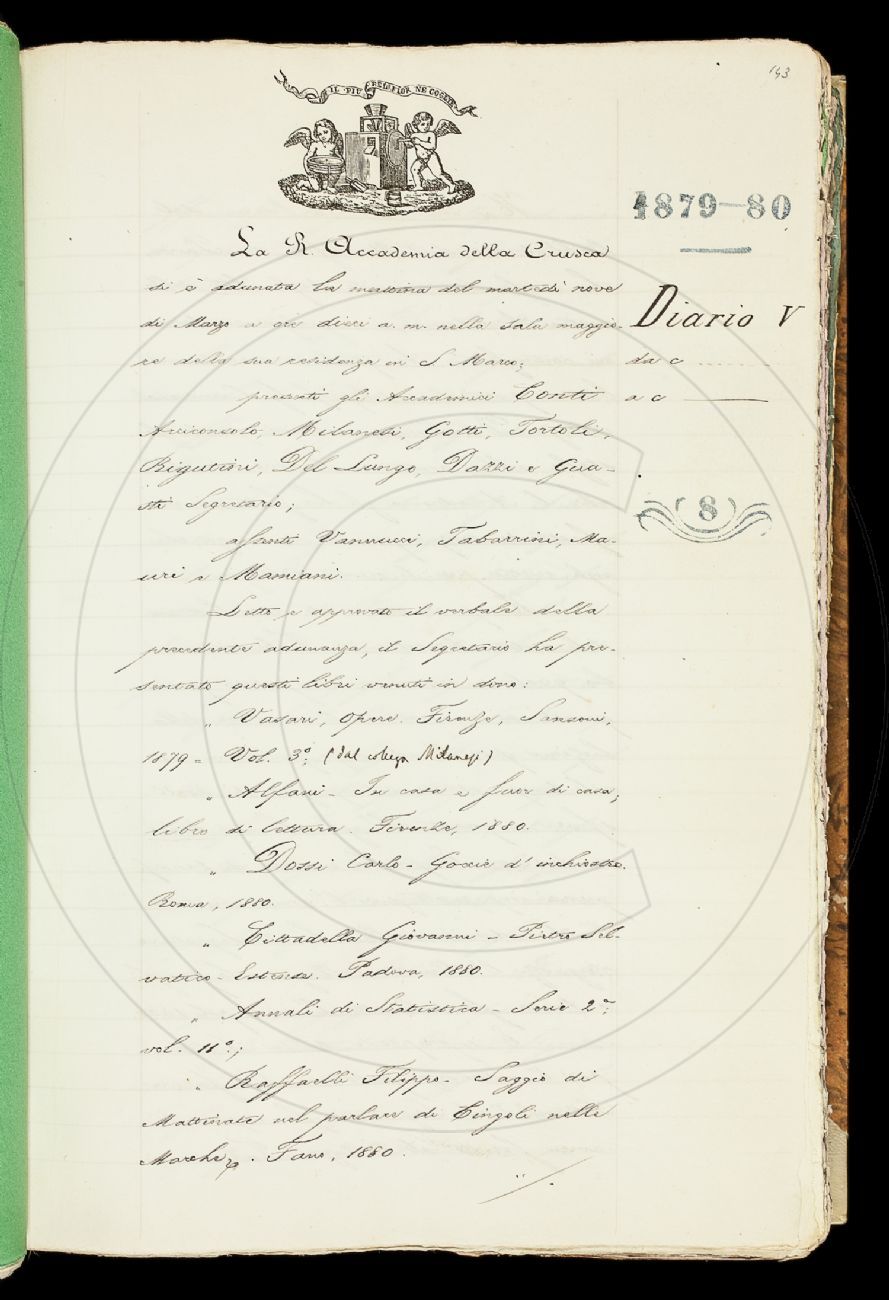 143
IL PIÙ BEL FIOR NE COGLIE
1879-80
La R. Accademia della Crusca
si è adunata la mattina del martedì nove
di Marzo a ore dieci a. m. nella sala maggio-
re della sua residenza in S. Marco;
Diario V
da c
a c
presenti gli Accademici Conti
Arciconsolo, Milanesi, Gotti, Tortoli,
Rigutini, Del Lungo, Dazzi e Gua-
sti Segretario;
(8)
assenti Vannucci, Tabarrini, Mau-
uri e Mamiani.
Letto e approvato il verbale della
precedente adunanza, il Segretario ha pre-
sentato questi libri venuti in dono:
„ Vasari, Opere. Firenze, Sansoni,
1879 - Vol. 3°; (dal collega Milanesi)
„ Alfani - In casa e fuor di casa,
libro di lettura. Firenze, 1880.
„ Dossi Carlo - Goccie d'inchiostro.
Roma, 1880.
„ Cittadella Giovanni - Pietro Sel-
vatico-Estense. Padova, 1880.
„ Annali di Statistica - Serie 2a;
vol. 11°;
„ Raffaelli Filippo - Saggio di
Mattinate nel parlare di Cingoli nelle
Marche. Fano, 1880.